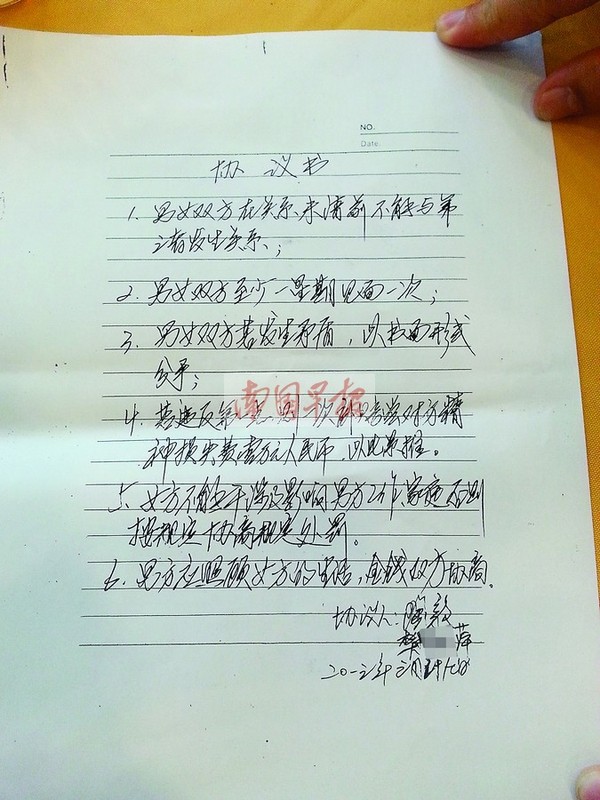 NO.
Date.
协议书
1、男女双方在关系未清前不能与第
三者发生关系、;
2、男女双方至少一星期见面一次;
3、男女双方若发生矛盾,以书面形式
公开;
南国早报
4、若违反第一点,一次 赔偿对方精
神损失费壹万元人民币,以此类推。
5、女方不能干涉及影响男方工作、家庭否则
按规定协商规定处罚。
6、男方应照顾女方的生活,金钱双方协商。
协议人:
萍
二〇一三年